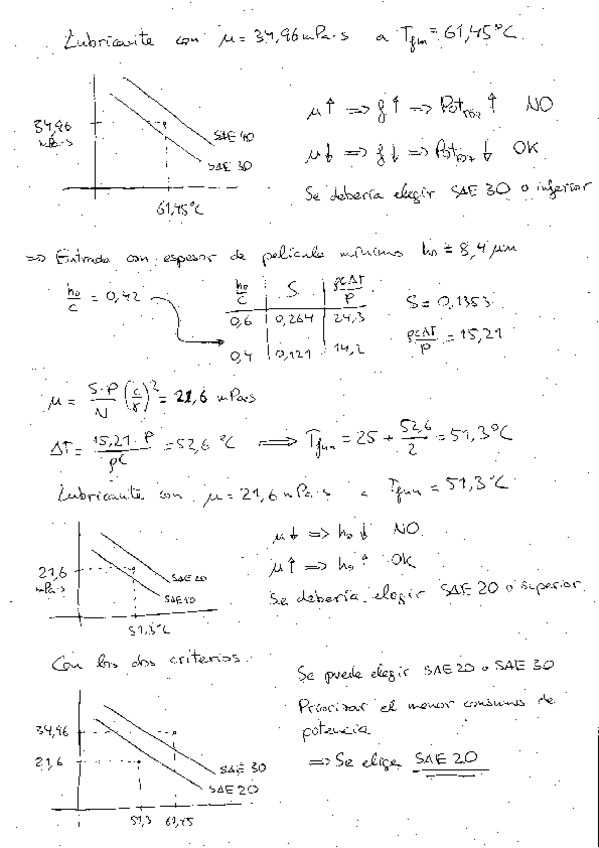 Lubricante con μ = 34,96 mPa·s a Tfun = 61,45°C.
34,96
mPa·s
SAE 40
SAE 30
61,45°C
μ↑ => f↑ => Potroz ↑ NO
μ↓ => f↓ => Potroz ↓ OK
Se debería elegir SAE 30 o inferior
=> Entrada con espesor de película mínimo h₀ = 8,4 μm
h₀/c = 0,42
h₀/c | S | ρcΔT/P
0,6 | 0,264 | 24,3
0,4 | 0,121 | 14,2
S = 0,1353
ρcΔT/P = 15,21
μ = S·P/N (c/r)² = 21,6 mPa·s
ΔT = 15,21·P/ρC = 52,6 °C => Tfun = 25 + 52,6/2 = 51,3°C
Lubricante con μ = 21,6 mPa·s a Tfun = 51,3°C
21,6
mPa·s
SAE 20
SAE 10
51,3°C
μ↓ => h₀↓ NO
μ↑ => h₀↑ OK
Se debería elegir SAE 20 o superior.
Con los dos criterios.
34,96
21,6
SAE 30
SAE 20
51,3 61,45
Se puede elegir SAE 20 o SAE 30
Priorizar el menor consumo de
potencia
=> Se elige SAE 20